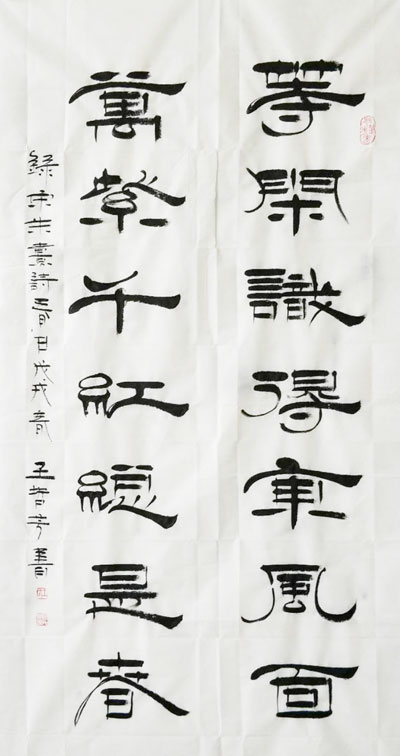 等閑識得東風面
萬紫千紅總是春
錄宋朱熹詩春日戊戌春 王書